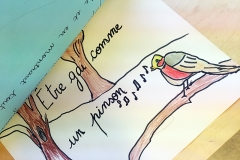 Être gai comme
un pinson